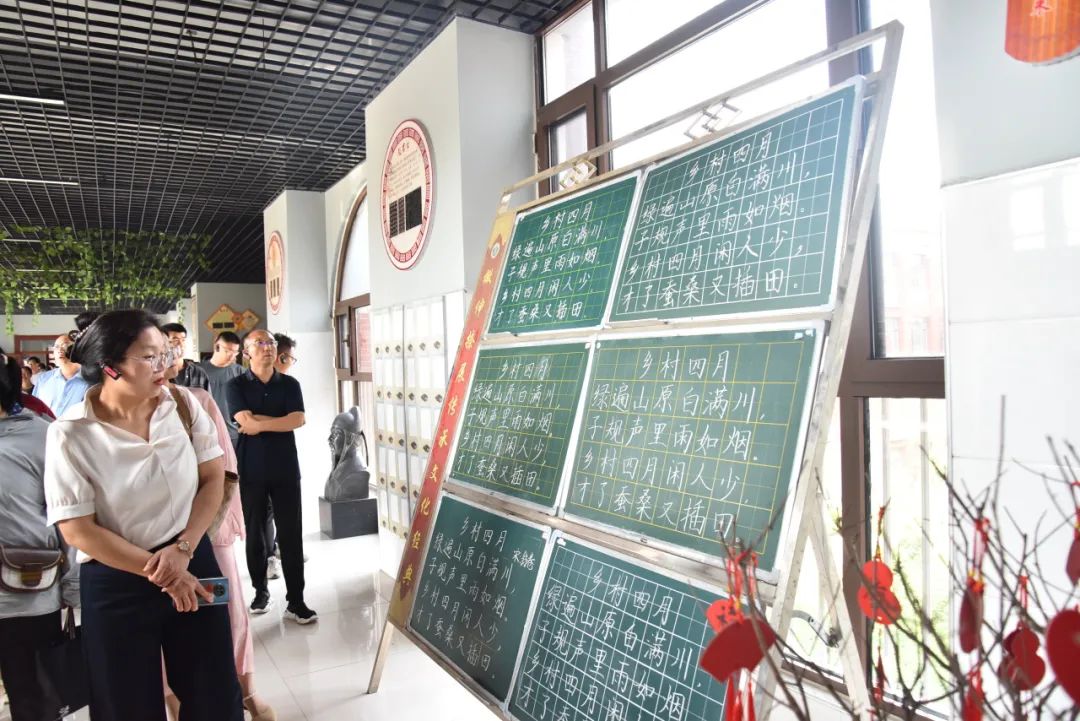 乡村四月
绿遍山原白满川，
子规声里雨如烟。
乡村四月闲人少，
才了蚕桑又插田。
乡村四月
绿遍山原白满川，
子规声里雨如烟。
乡村四月闲人少，
才了蚕桑又插田。
乡村四月
绿遍山原白满川，
子规声里雨如烟。
乡村四月闲人少，
才了蚕桑又插田。
乡村四月
绿遍山原白满川，
子规声里雨如烟。
乡村四月闲人少，
才了蚕桑又插田。
乡村四月
绿遍山原白满川，
子规声里雨如烟。
乡村四月闲人少，
才了蚕桑又插田。
乡村四月
绿遍山原白满川，
子规声里雨如烟。
乡村四月闲人少，
才了蚕桑又插田
传承文化经典